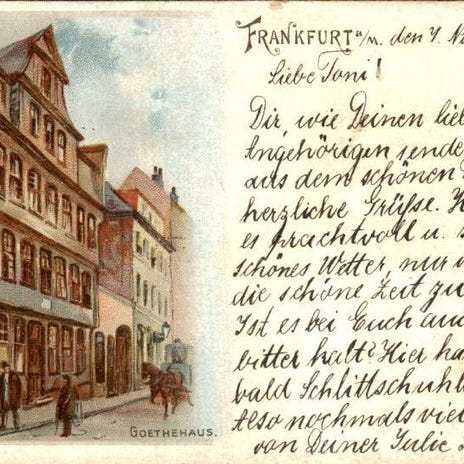 FRANKFURT a/M. den 4. N
Liebe Toni!
Dir, wie Deinen lie
Angehörigen sende
aus dem schönen
herzliche Grüße.
es prachtvoll u.
schönes Wetter, nur
die schöne Zeit zu
Ist es bei Euch au
bitter kalt? Hier ha
bald Schlittschuh
Also nochmals vie
von Deiner Julie
GOETHEHAUS.